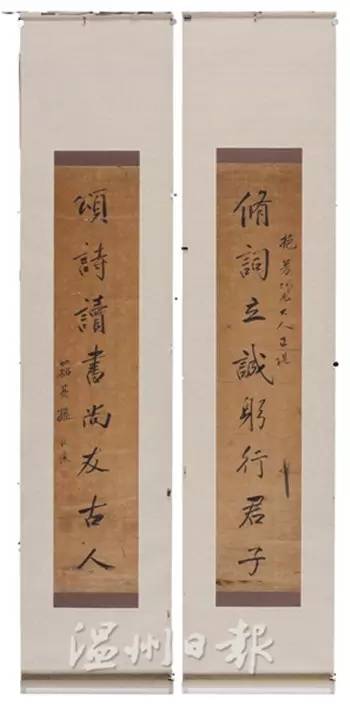 脩詞立誠躬行君子
大人
頌詩讀書尚友古人
温州日報